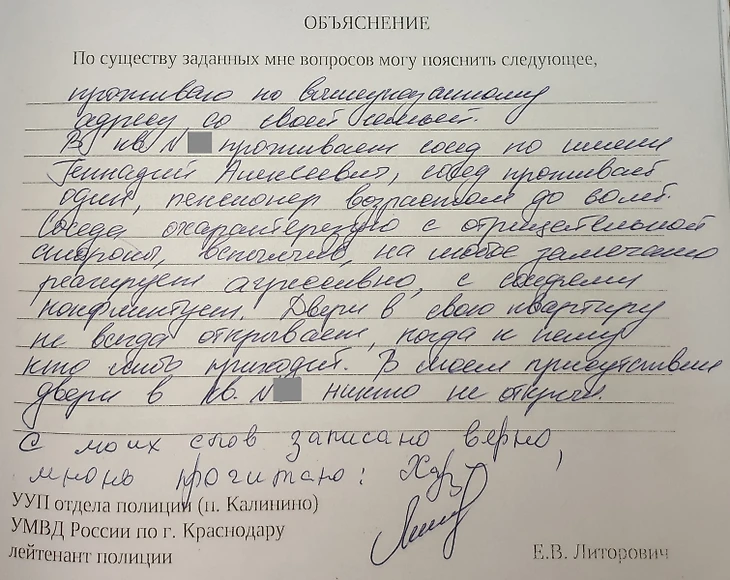 ОБЪЯСНЕНИЕ
По существу заданных мне вопросов могу пояснить следующее,
проживаю по вышеуказанному
адресу со своей семьей.
В кв. N проживает сосед по имени
Геннадий Алексеевич, сосед проживает
один, пенсионер возрастом до 80 лет.
Соседа охарактеризую с отрицательной
стороны, вспыльчив, на любое замечание
реагирует агрессивно, с соседями
конфликтует. Двери в свою квартиру
не всегда открывает, когда к нему
кто либо приходит. В моем присутствии
двери в кв. N никто не открыл.
С моих слов записано верно,
мною прочитано:
УУП отдела полиции (п. Калинино)
УМВД России по г. Краснодару
лейтенант полиции
Е.В. Литорович